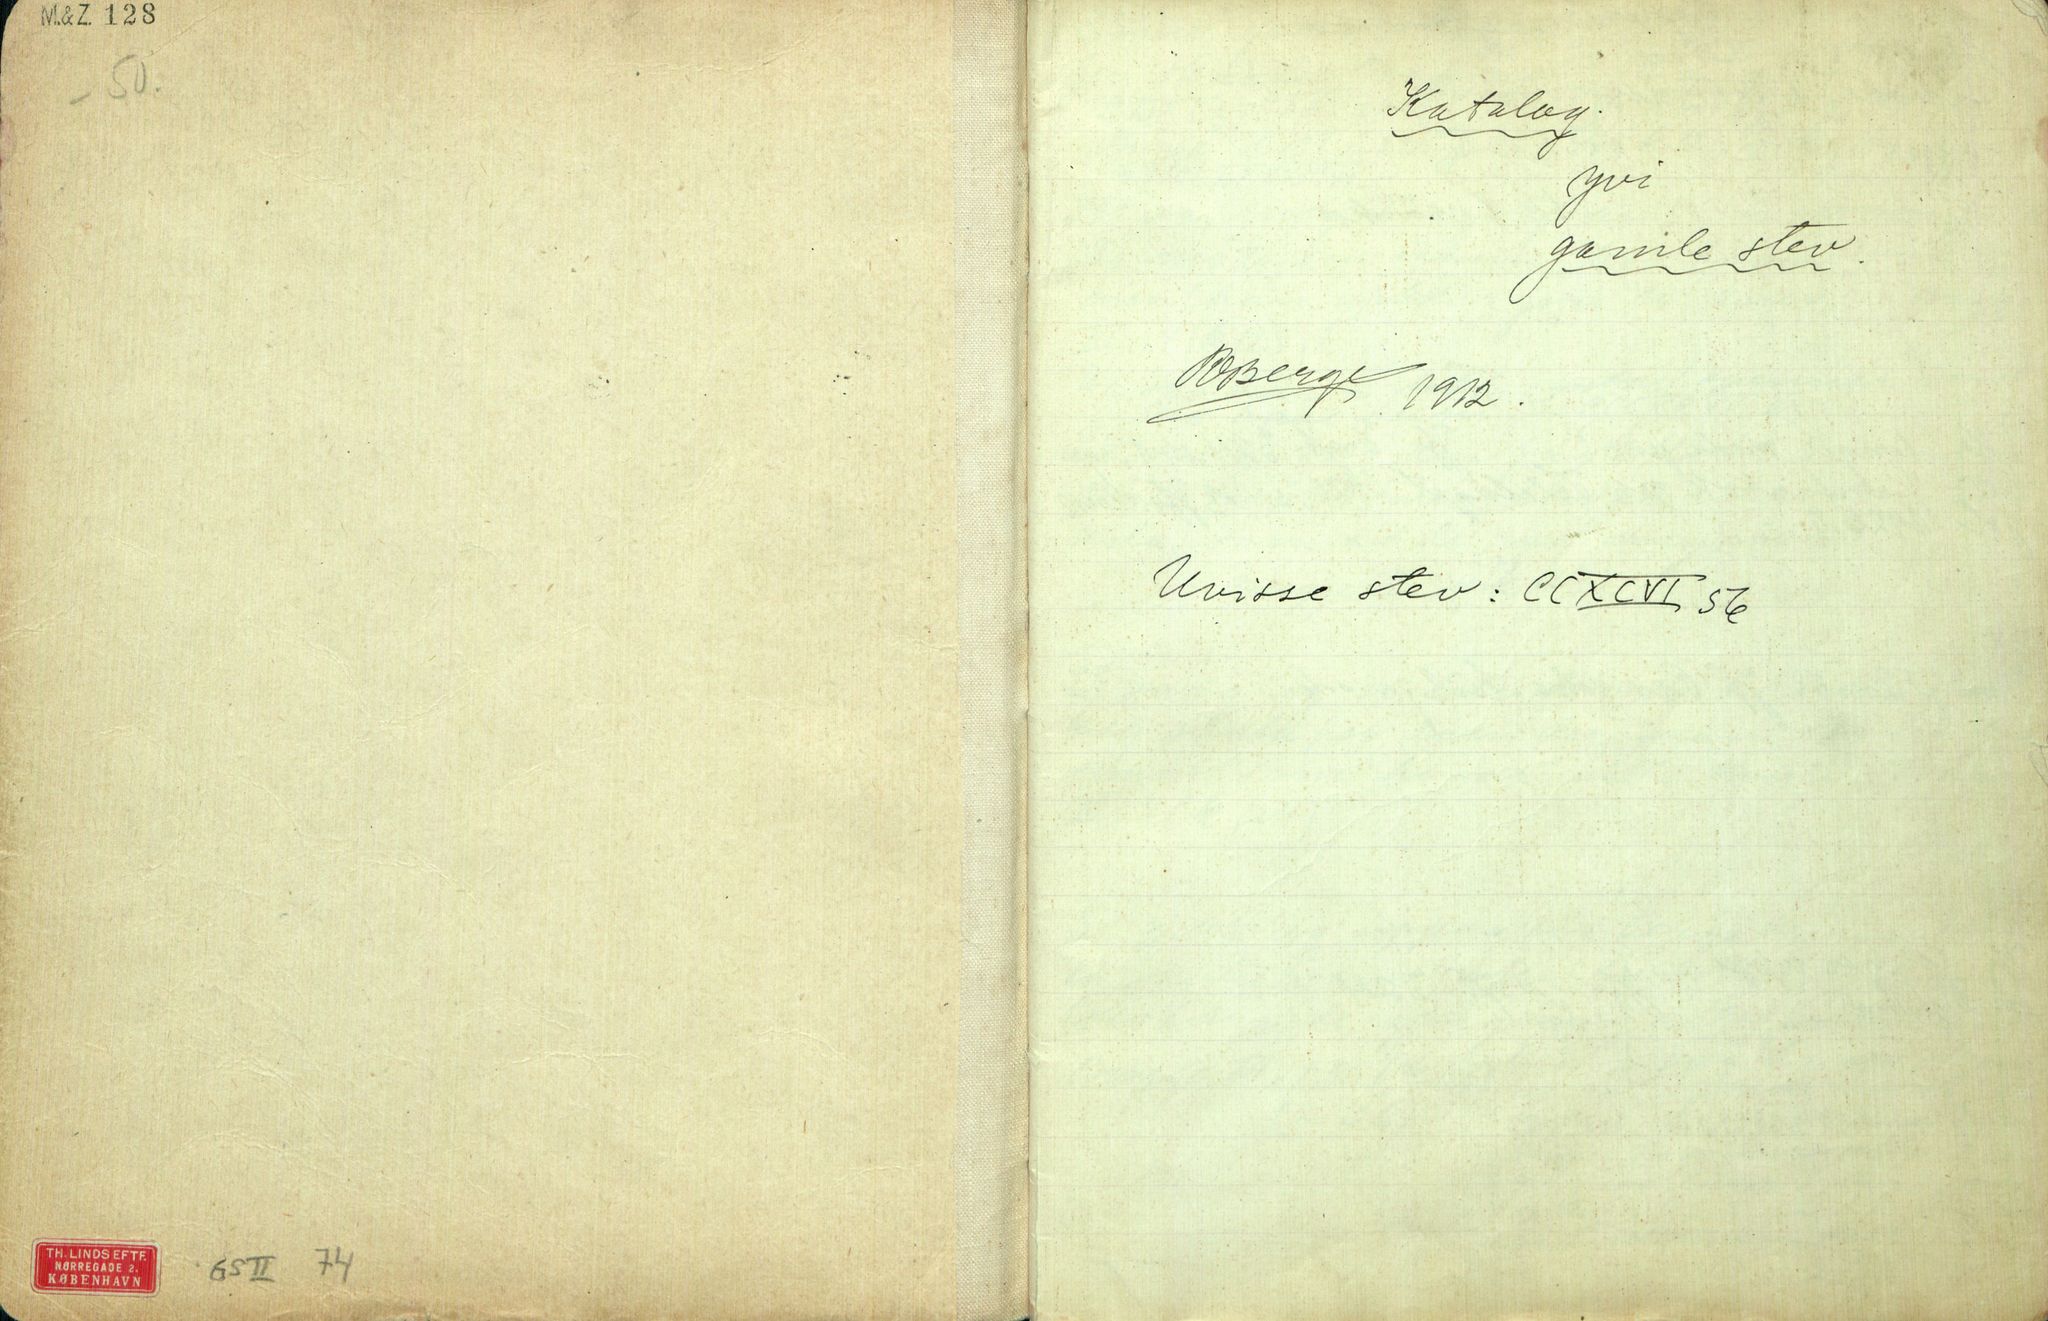 M.&Z. 128
- 50.
TH. LINDS EFTF.
NØRREGADE 2.
KØBENHAVN
GS II 74
Katalog.
yvi
gamle stev.
RBerge 1912.
Uvisse stev: CCXCVI 56